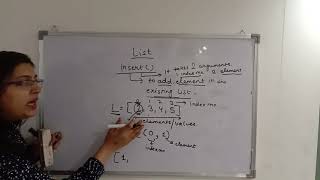 List
insert() → it takes 2 arguments
index no. & element
→ to add element in the
existing list.
1 2 3 → index no.
L = [2, 3, 4, 5]
elements/values.
(0, 1)
index no
element
[1,